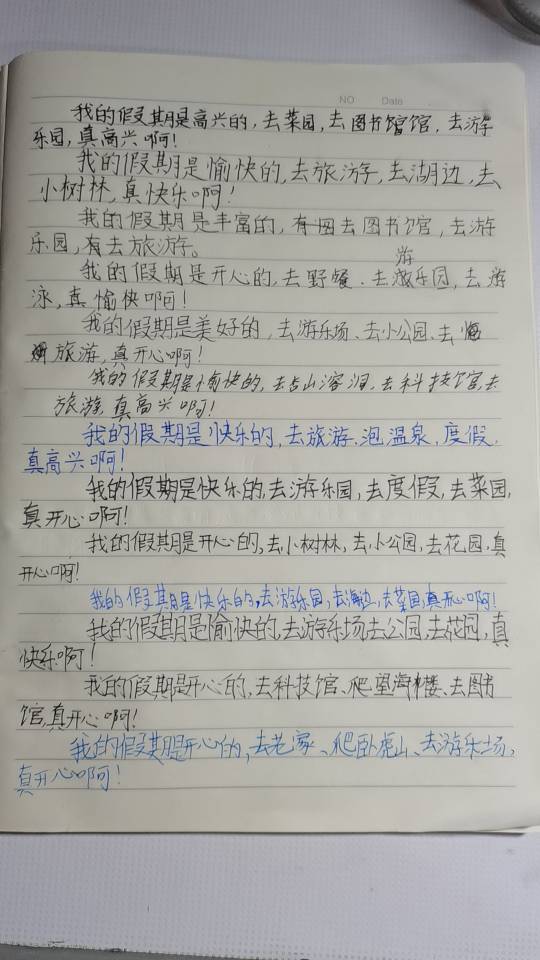 NO Date
我的假期是高兴的，去菜园，去图书馆，去游
乐园，真高兴啊！
我的假期是愉快的，去旅游，去湖边，去
小树林，真快乐啊！
我的假期是丰富的，去图书馆，去游
乐园，有去旅游。
游
我的假期是开心的，去野餐、去乐园，去游
泳，真愉快啊！
我的假期是美好的，去游乐场、去小公园、去
旅游，真开心啊！
我的假期是愉快的，去山溶洞，去科技馆，去
旅游，真高兴啊！
我的假期是快乐的，去旅游、泡温泉，度假，
真高兴啊！
我的假期是快乐的，去游乐园，去度假，去菜园，
真开心啊！
我的假期是开心的，去小树林，去小公园，去花园，真
开心啊！
我的假期是快乐的，去游乐园，去海边，去菜园，真开心啊！
我的假期是愉快的，去游乐场，去公园，去花园，真
快乐啊！
我的假期是开心的，去科技馆、爬望海楼、去图书
馆，真开心啊！
我的假期是开心的，去老家、爬卧虎山、去游乐场，
真开心啊！